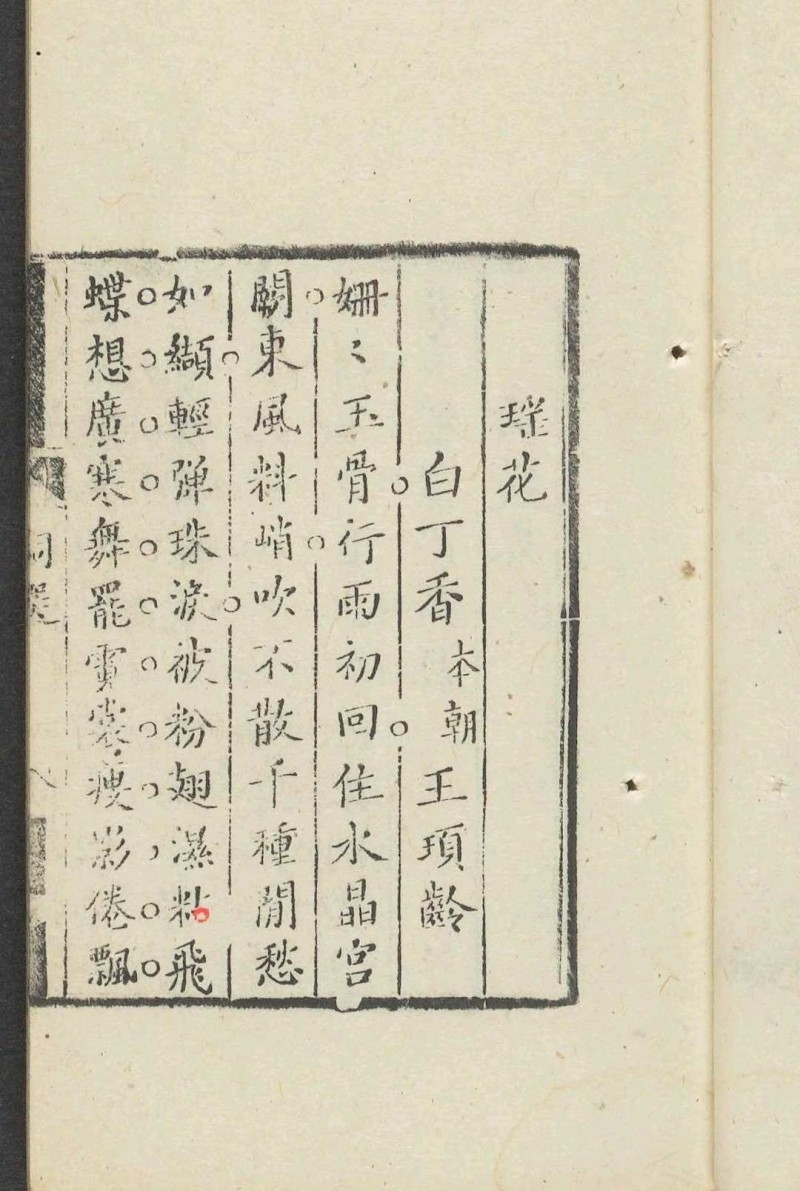 瑶花
白丁香 本朝 王頊齡
姍〻玉骨行雨初回住水晶宮
闕東風料峭吹不散千種閒愁
如纈輕彈珠淚被粉翅濕粘飛
蝶想廣寒舞罷霓裳瘦影倦飄